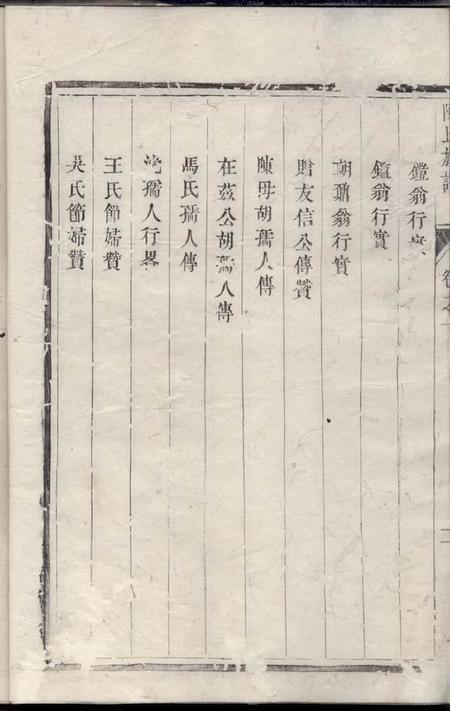 陳氏族譜
鐙翁行實
鑑翁行實
翁行實
贈友信公傳贊
陳母胡孺人傳
在茲公胡孺人傳
馬氏孺人傳
孺人行畧
王氏節婦贊
吳氏節婦贊